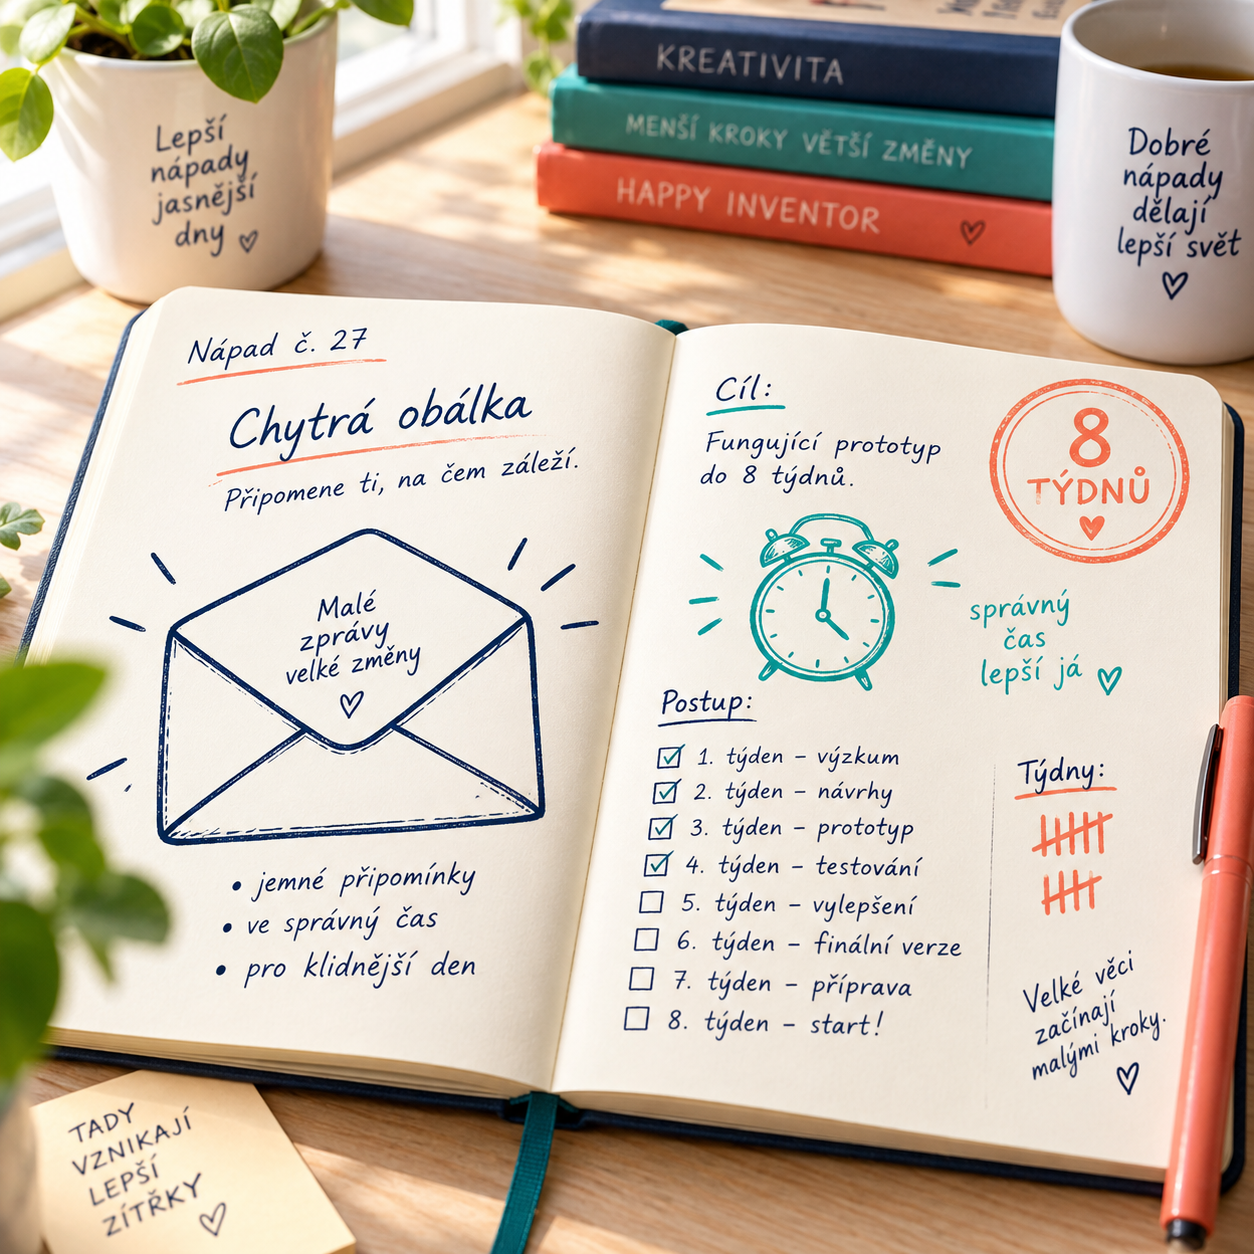 Lepší
nápady
jasnější
dny
KREATIVITA
MENŠÍ KROKY VĚTŠÍ ZMĚNY
HAPPY INVENTOR
Dobré
nápady
dělají
lepší svět
Nápad č. 27
Chytrá obálka
Připomene ti, na čem záleží.
Malé
zprávy
velké změny
• jemné připomínky
• ve správný čas
• pro klidnější den
Cíl:
Fungující prototyp
do 8 týdnů.
8
TÝDNŮ
správný
čas
lepší já
Postup:
1. týden – výzkum
2. týden – návrhy
3. týden – prototyp
4. týden – testování
5. týden – vylepšení
6. týden – finální verze
7. týden – příprava
8. týden – start!
Týdny:
Velké věci
začínají
malými kroky.
TADY
VZNIKAJÍ
LEPŠÍ
ZÍTŘKY